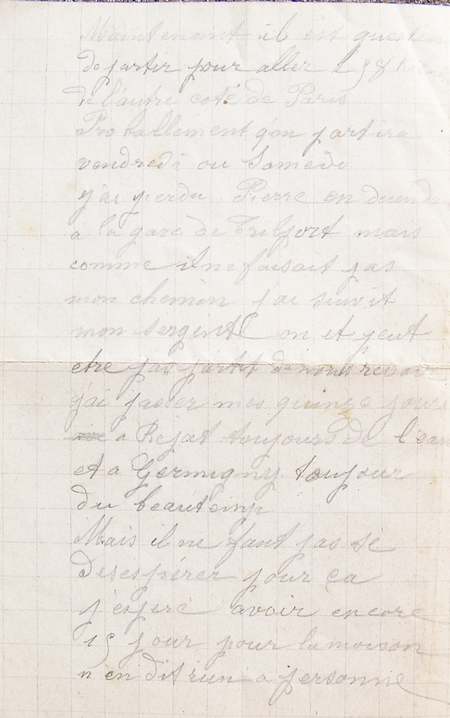 Maintenant il est quest
de partir pour aller a 58
de l'autre coté de Paris
Proballement qu'on partira
vendredi ou Samedi
j'ai perdu Pierre en
a la gare de Trilport mais
comme il ne faisait pas
mon chemin j'ai suivit
mon sergent on et peut
etre pas partit de nous revoir
j'ai passer mes quinze jours
a Repat toujours de l'eau
et a Germigny toujour
du beautemp
Mais il ne faut pas se
desesperer pour ça
j'espere avoir encore
15 jour pour la moison
n'en dit rien a personne